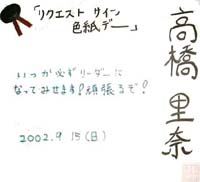 「リクエスト サイン
色紙デー」
いつか必ずリーダーに
なってみせます!頑張るぞ!
2002.9.15(日)
高橋里奈